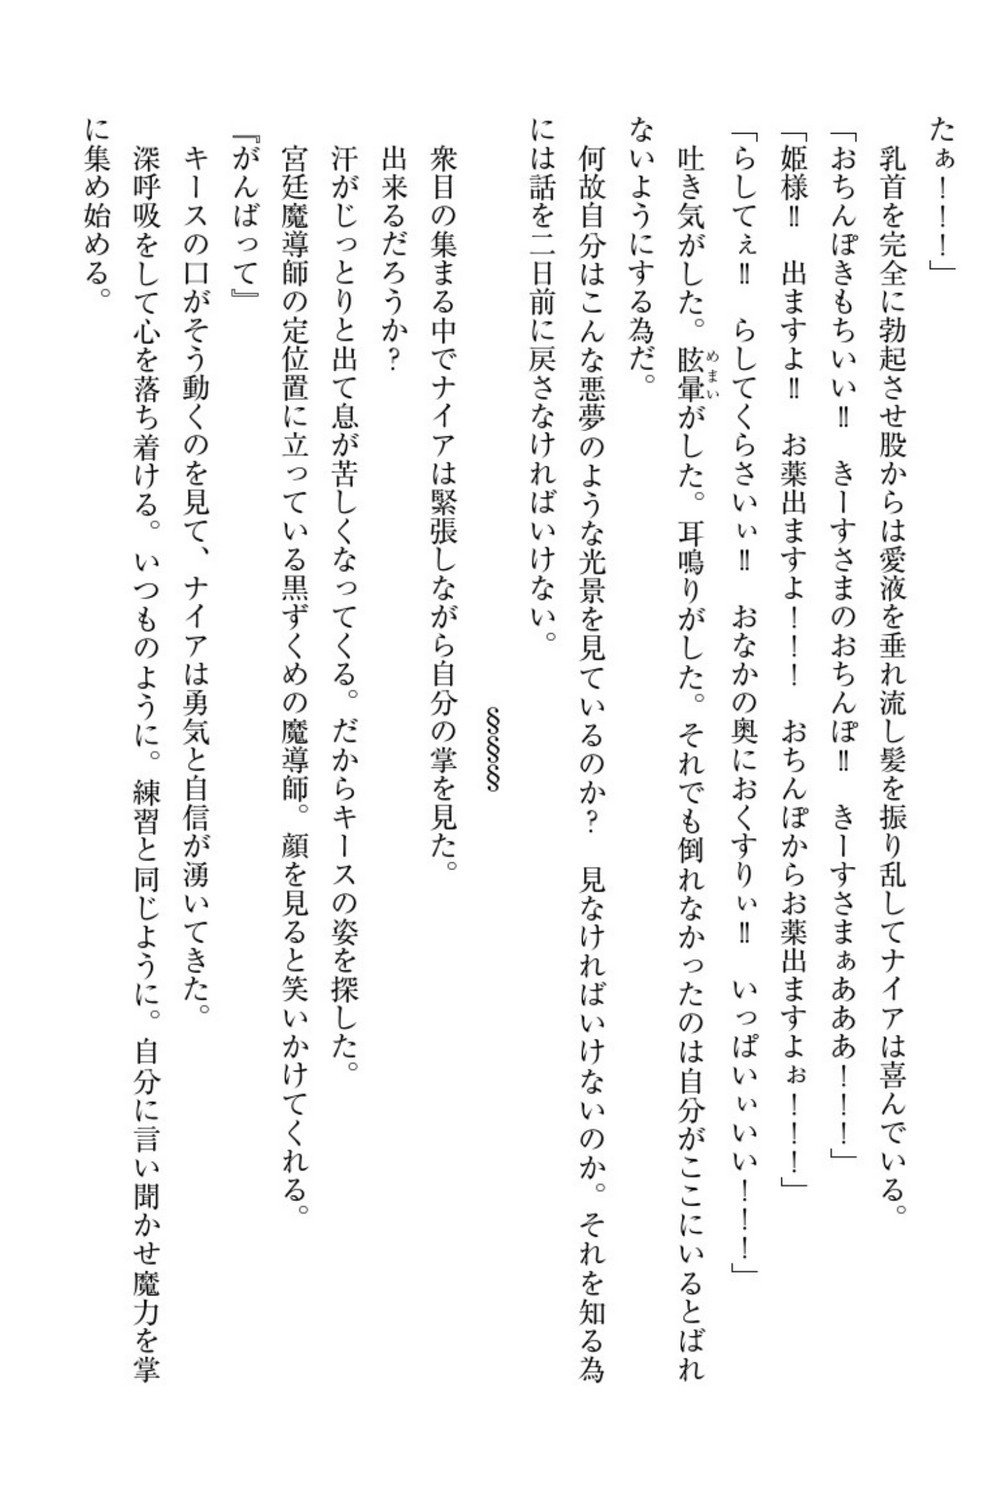 たぁ！！！」
乳首を完全に勃起させ股からは愛液を垂れ流し髪を振り乱してナイアは喜んでいる。
「おちんぽきもちいい‼　きーすさまのおちんぽ‼　きーすさまぁあああ！！！」
「姫様‼　出ますよ‼　お薬出ますよ！！！　おちんぽからお薬出ますよぉ！！！」
「らしてぇ‼　らしてくらさいぃ‼　おなかの奥におくすりぃ‼　いっぱいぃいい！！！」
吐き気がした。眩暈（めまい）がした。耳鳴りがした。それでも倒れなかったのは自分がここにいるとばれ
ないようにする為だ。
何故自分はこんな悪夢のような光景を見ているのか？　見なければいけないのか。それを知る為
には話を二日前に戻さなければいけない。
§§§
衆目の集まる中でナイアは緊張しながら自分の掌を見た。
出来るだろうか？
汗がじっとりと出て息が苦しくなってくる。だからキースの姿を探した。
宮廷魔導師の定位置に立っている黒ずくめの魔導師。顔を見ると笑いかけてくれる。
『がんばって』
キースの口がそう動くのを見て、ナイアは勇気と自信が湧いてきた。
深呼吸をして心を落ち着ける。いつものように。練習と同じように。自分に言い聞かせ魔力を掌
に集め始める。